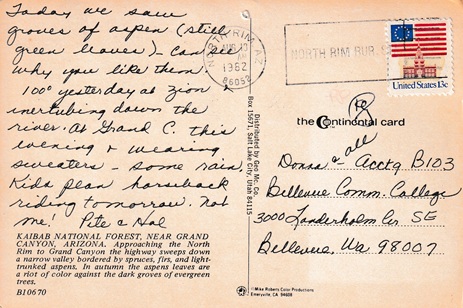 Today we saw
groves of aspen (still
green leaves) - can see
why you like them.
100° yesterday at Zion &
inertubing down the
river. At Grand C. this
evening & wearing
sweaters - some rain,
Kids plan horseback
riding tomorrow. Not
me! Pete & Hal
KAIBAB NATIONAL FOREST, NEAR GRAND
CANYON, ARIZONA. Approaching the North
Rim to Grand Canyon the highway sweeps down
a narrow valley bordered by spruces, firs, and light-
trunked aspens. In autumn the aspens leaves are
a riot of color against the dark groves of evergreen
trees.
B10670
Distributed by Geo Mc. Co.
Box 15671, Salt Lake City, Utah 84115
NORTH RIM, AZ
1982
86052
NORTH RIM RUR. STA
United States 13c
the Continental card
Donna & all Acctg B103
Bellevue Comm. College
3000 Landerholm Cir SE
Bellevue, Wa 98007
© Mike Roberts Color Productions
Emeryville, CA 94608